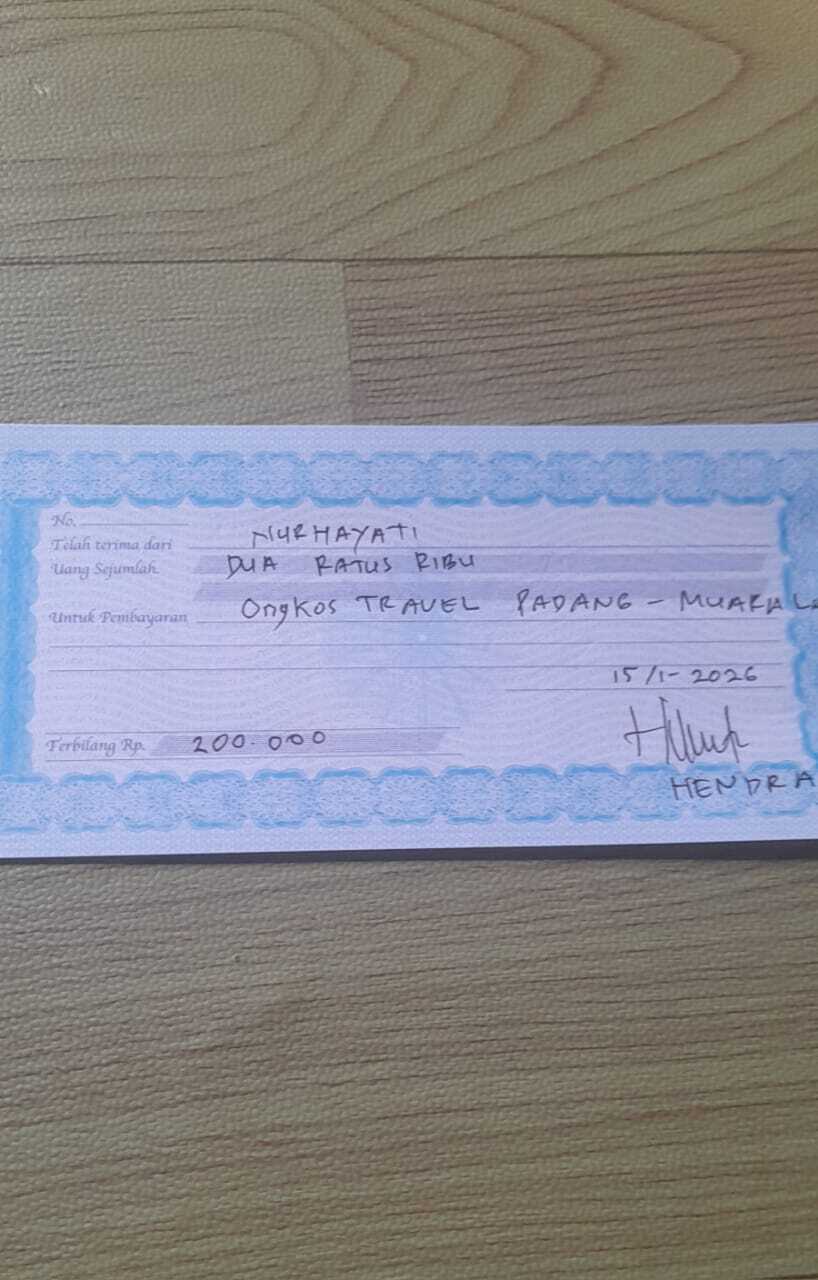 No.
Telah terima dari NURHAYATI
Uang Sejumlah DUA RATUS RIBU
Untuk Pembayaran OngKos TRAVEL PADANG -
15/1-2026
Terbilang Rp. 200.000
HENDRA